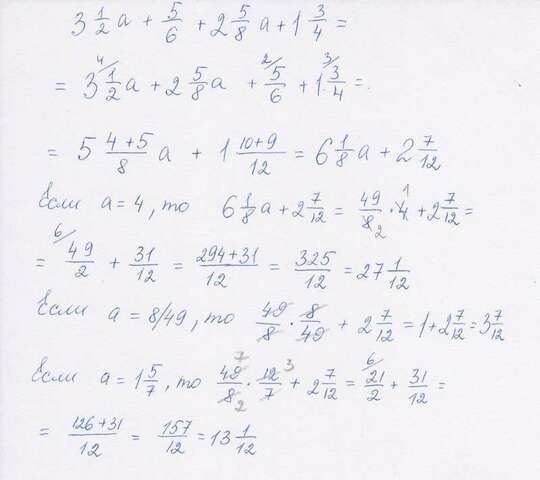 3 1/2 a + 5/6 + 2 5/8 a + 1 3/4 =
= 3 4/ 1/2 a + 2 5/8 a + 2/ 5/6 + 1 3/ 3/4 =
= 5 (4+5)/8 a + 1 (10+9)/12 = 6 1/8 a + 2 7/12
Если a = 4, то 6 1/8 a + 2 7/12 = 49/8 2 · 4 1 + 2 7/12 =
= 6/ 49/2 + 31/12 = (294+31)/12 = 325/12 = 27 1/12
Если a = 8/49, то 49/8 · 8/49 + 2 7/12 = 1 + 2 7/12 = 3 7/12
Если a = 1 5/7, то 49 7/8 2 · 12 3/7 + 2 7/12 = 6/ 21/2 + 31/12 =
= (126+31)/12 = 157/12 = 13 1/12